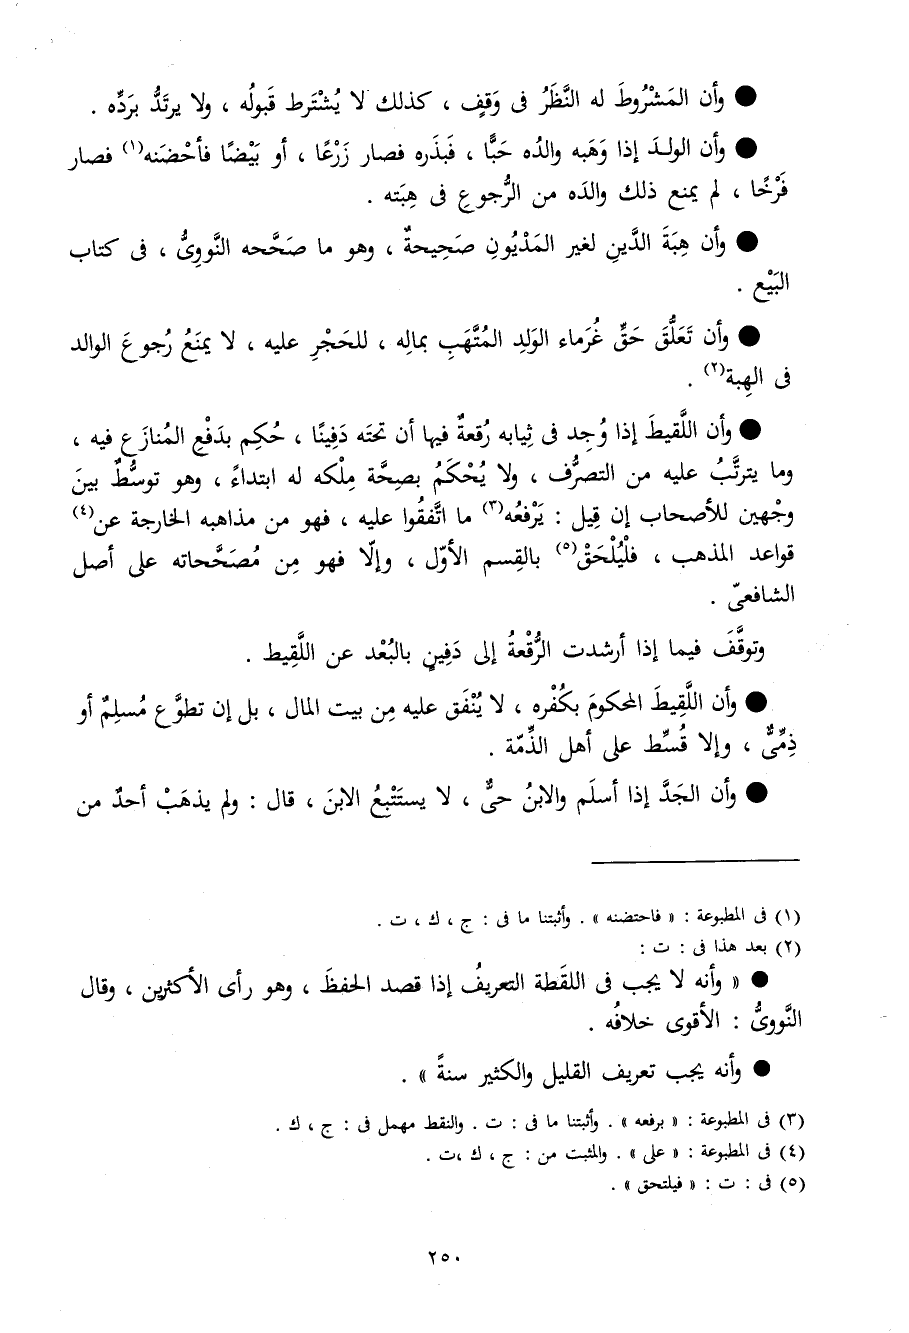 ● وأن المَشْرُوطَ له النَّظَرُ فى وَقفٍ ، كذلك لا يُشْتَرط قَبولُه ، ولا يرتَدُّ بَردِّه .
● وأن الولـدَ إذا وَهَبه والدُه حَبًّا ، فَبذَره فصار زَرْعًا ، أو بَيْضًا فأحْضَنه(١) فصار
فَرْخًا ، لم يمنع ذلك والدَه من الرُّجوعِ فى هِبَته .
● وأن هِبَةَ الدَّينِ لغير المَدْيُونِ صَحِيحةٌ ، وهو ما صَحَّحه النَّووِىُّ ، فى كتاب
البَيْع .
● وأن تَعَلُّقَ حَقِّ غُرَماء الوَلدِ المُتَّهَبِ بمالِه ، للحَجْرِ عليه ، لا يمنَعُ رُجوعَ الوالد
فى الهِبة(٢) .
● وأن اللَّقيطَ إذا وُجِد فى ثِيابه رُقعةٌ فيها أن تحتَه دَفِينًا ، حُكِم بدَفْعِ المُنازَع فيه ،
وما يترتَّبُ عليه من التصرُّف ، ولا يُحْكَمُ بصِحَّة مِلْكه له ابتداءً ، وهو توسُّطٌ بينَ
وجْهين للأصحاب إن قِيل : يَرْفعُه(٣) ما اتَّفقُوا عليه ، فهو من مذاهبه الخارجة عن(٤)
قواعد المذهب ، فلْيُلْحَقْ(٥) بالقِسم الأوّل ، وإلّا فهو مِن مُصَحَّحاته على أصل
الشافعىّ .
وتوقَّفَ فيما إذا أرشدت الرُّقْعةُ إلى دَفِينٍ بالبُعْد عن اللَّقِيط .
● وأن اللَّقِيطَ المحكومَ بكُفْره ، لا يُنْفَق عليه مِن بيت المال ، بل إن تطوَّع مُسلِمٌ أو
ذِمِّىٌّ ، وإلا قُسِّط على أهل الذِّمّة .
● وأن الجَدَّ إذا أسلَم والابنُ حىٌّ ، لا يستَتْبِعُ الابنَ ، قال : ولم يذهَبْ أحدٌ من
(١) فى المطبوعة : « فاحتضنه » . وأثبتنا ما فى : ج ، ك ، ت .
(٢) بعد هذا فى : ت :
● « وأنه لا يجب فى اللقَطة التعريفُ إذا قصد الحفظَ ، وهو رأى الأكثرين ، وقال
النَّووىُّ : الأقوى خلافُه .
● وأنه يجب تعريف القليل والكثير سنةً » .
(٣) فى المطبوعة : « برفعه » . وأثبتنا ما فى : ت . والنقط مهمل فى : ج ، ك .
(٤) فى المطبوعة : « على » . والمثبت من : ج ، ك ،ت .
(٥) فى : ت : « فيلتحق » .
٢٥٠